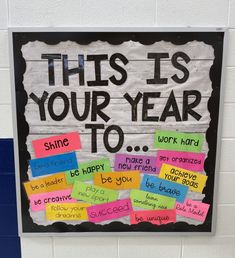 THIS IS
YOUR YEAR
TO...
Shine
work hard
try new things
make a friend
get organized
be a leader
be happy
be you
achieve your goals
be creative
play a new sport
be kind
follow your dreams
SUCCEED
learn something new
be a role model
be unique